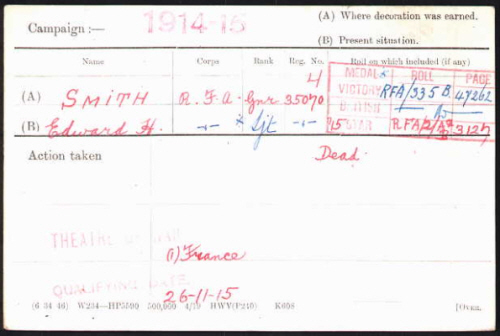 Campaign :— 1914-15 (A) Where decoration was earned.
(B) Present situation.
Name Corps Rank Reg. No. Roll on which included (if any)
MEDAL ROLL PAGE
(A) SMITH R. F. A. Gnr 4 35070 VICTORY RFA/335 B 47262
BRITISH —"— Do
(B) Edward H. —"— Sjt —"— 15 STAR R.FA/2/ 3127
Action taken Dead.
THEATRE OF WAR
(1) France
QUALIFYING DATE
26-11-15
(6 34 46) W234—HP5590 500,000 4/19 HWV(P240) K608 [OVER.